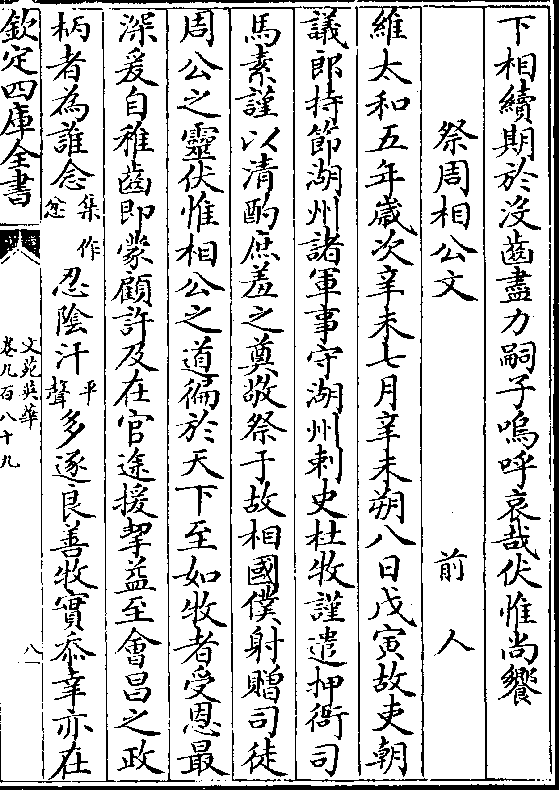 下相續期於没齒盡力嗣子嗚呼哀哉伏惟尚饗
祭周相公文 前人
維太和五年歳次辛未七月辛未朔八日戊寅故吏朝
議郎持節湖州諸軍事守湖州刺史杜牧謹遣押衙司
馬素謹以清酌庶羞之奠敬祭于故相國僕射贈司徒
周公之靈伏惟相公之道徧於天下至如牧者受恩最
深爰自稚齒即蒙顧許及在官途援挈益至會昌之政
柄者為誰念集作忿忍陰汗平聲多逐良善牧實忝幸亦在
欽定四庫全書
文苑英華
卷九百八十九
八